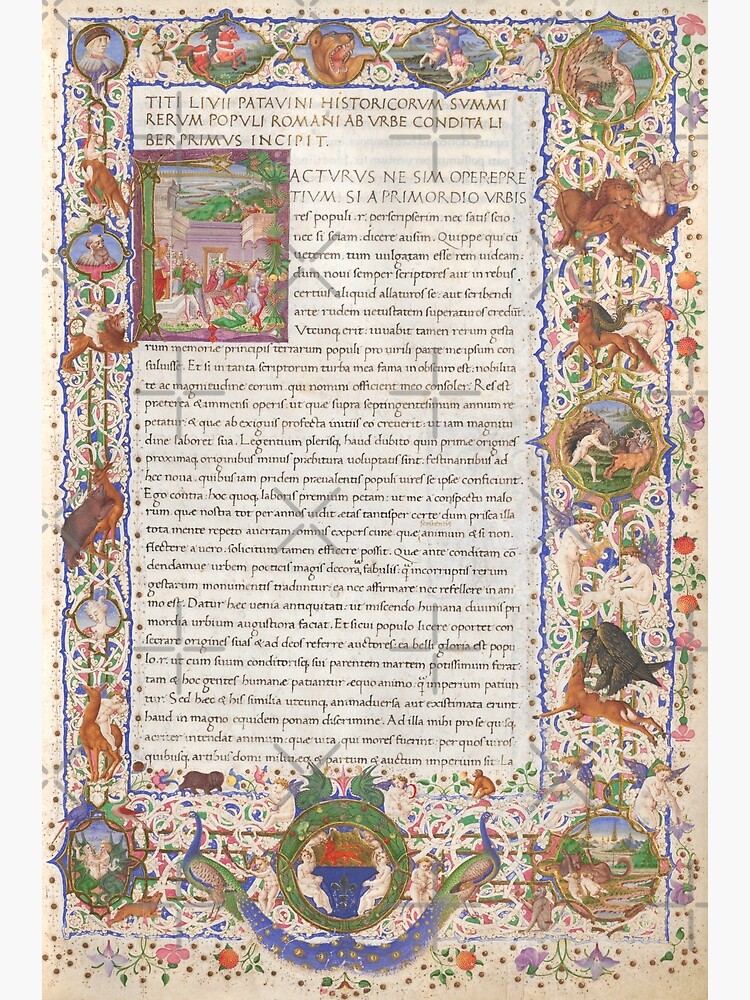 TITI LIVII PATAVINI HISTORICORVM SVMMI
RERVM POPVLI ROMANI AB VRBE CONDITA LI
BER PRIMVS INCIPIT.
FACTVRVS NE SIM OPEREPRE
TIVM: SI A PRIMORDIO VRBIS
res populi .r. perscripserim: nec satis scio:
nec si sciam: dicere ausim. Quippe qui cū
ueterem, tum uulgatam esse rem uideam:
dum noui semper scriptores aut in rebus
certius aliquid allaturos se: aut scribendi
arte rudem uetustatem superaturos credūt.
Vtcunq; erit: iuuabit tamen rerum gesta
rum memoriæ principis terrarum populi pro uirili parte me ipsum con
suluisse. Et si in tanta scriptorum turba mea fama in obscuro est: nobilita
te ac magnitudine eorum, qui nomini officient meo consoler. Res est
preterea & immensi operis: ut quæ supra septingentesimum annum re
petatur: & quæ ab exiguis profecta initiis eo creuerit: ut iam magnitu
dine laboret sua. Legentium plerisq; haud dubito quin primæ origines
proximaq; originibus minus præbitura uoluptatis sint: festinantibus ad
hec noua: quibus iam pridem præualentis populi uires se ipse conficiunt.
Ego contra: hoc quoq; laboris premium petam: ut me a conspectu malo
rum que nostra tot per annos uidit ætas tantisper certe dum prisca illa
tota mente repeto auertam: omnis expers curæ quæ scribentis animum & si non
flectere a uero: solicitum tamen efficere possit. Que ante conditam cō
dendamue urbem poeticis magis decora fabulis: q̄ incorruptis rerum
gestarum monumentis traduntur: ea nec affirmare nec refellere in ani
mo est. Datur hec uenia antiquitati: ut miscendo humana diuinis pri
mordia urbium augustiora faciat. Et si cui populo licere oportet con
secrare origines suas & ad deos referre auctores: ea belli gloria est popu
lo .r. ut cum suum conditorisq; sui parentem martem potissimum ferat:
tam & hoc gentes humanæ patiantur æquo animo: q̄ imperium patiun
tur. Sed hæc & his similia utcunq; animaduersa aut existimata erunt:
haud in magno equidem ponam discrimine. Ad illa mihi pro se quisq;
acriter intendat animum: quæ uita, qui mores fuerint: per quos uiros
quibusq; artibus domi militiæq; & partum & auctum imperium sit. La